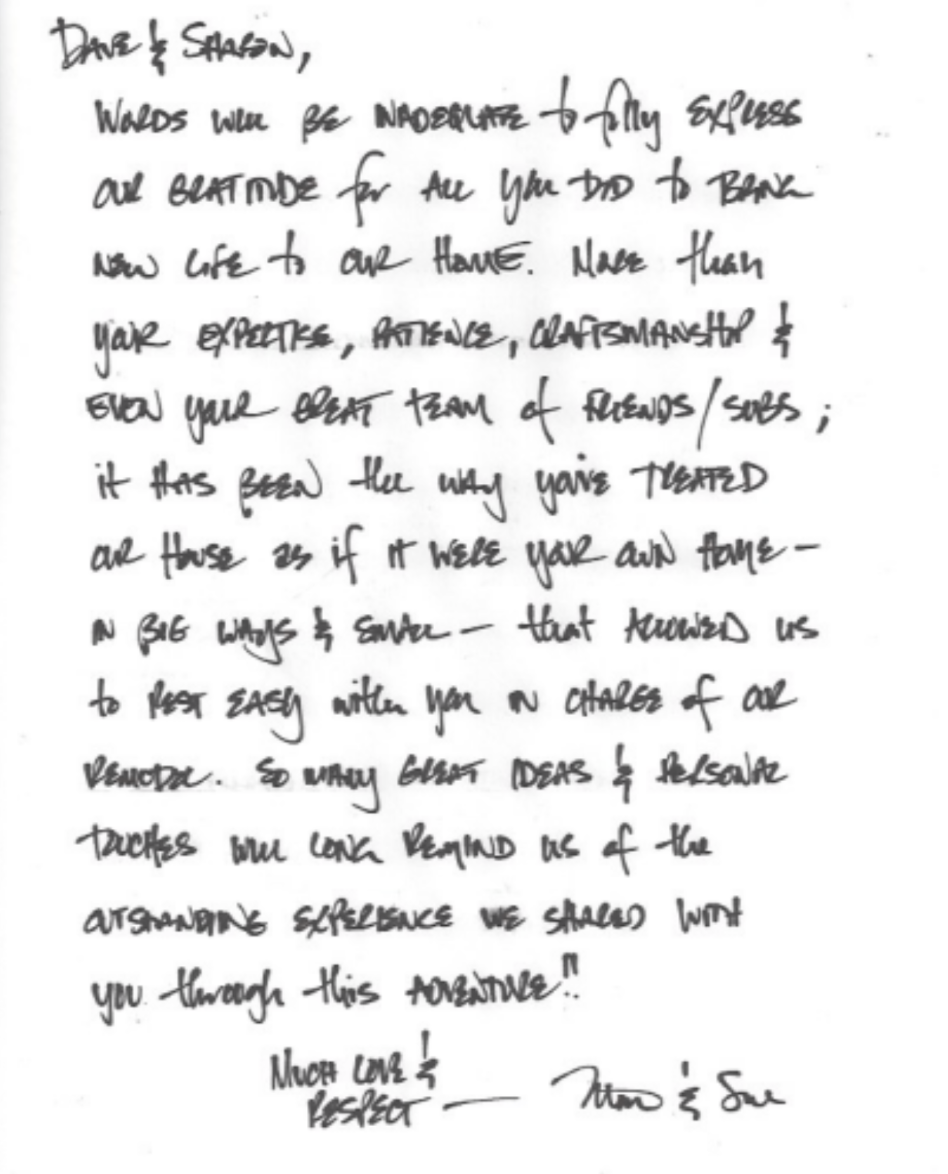 Dave & Sharon,
Words will be inadequate to fully express
our gratitude for all you did to bring
new life to our home. More than
your expertise, patience, craftsmanship &
even your great team of friends/subs;
it has been the way you've treated
our house as if it were your own home –
in big ways & small – that allowed us
to rest easy with you in charge of our
remodel. So many great ideas & personal
touches will long remind us of the
outstanding experience we shared with
you through this adventure!!
Much love &
respect — & Sue